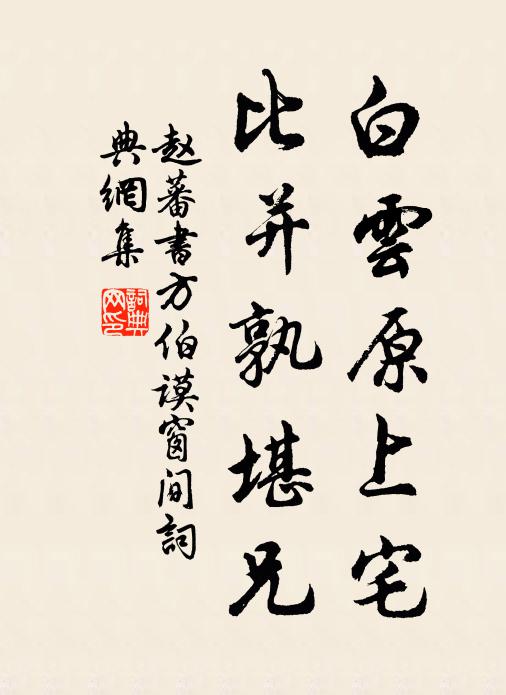 白雲原上宅
比并孰堪兄
赵蕃書方伯謨窗间詞
典網集
詞典網印